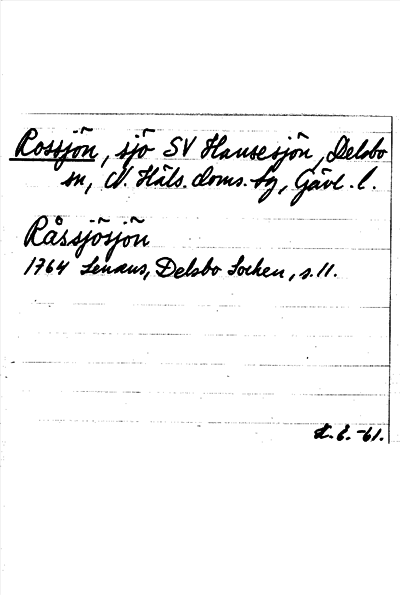 Rossjön, sjö SV Hansesjön, Delsbo
sn, N. Häls. doms. bg, Gävl. l.
Råssjösjön
1764 Lenæus, Delsbo Socken, s. 11.
-61.